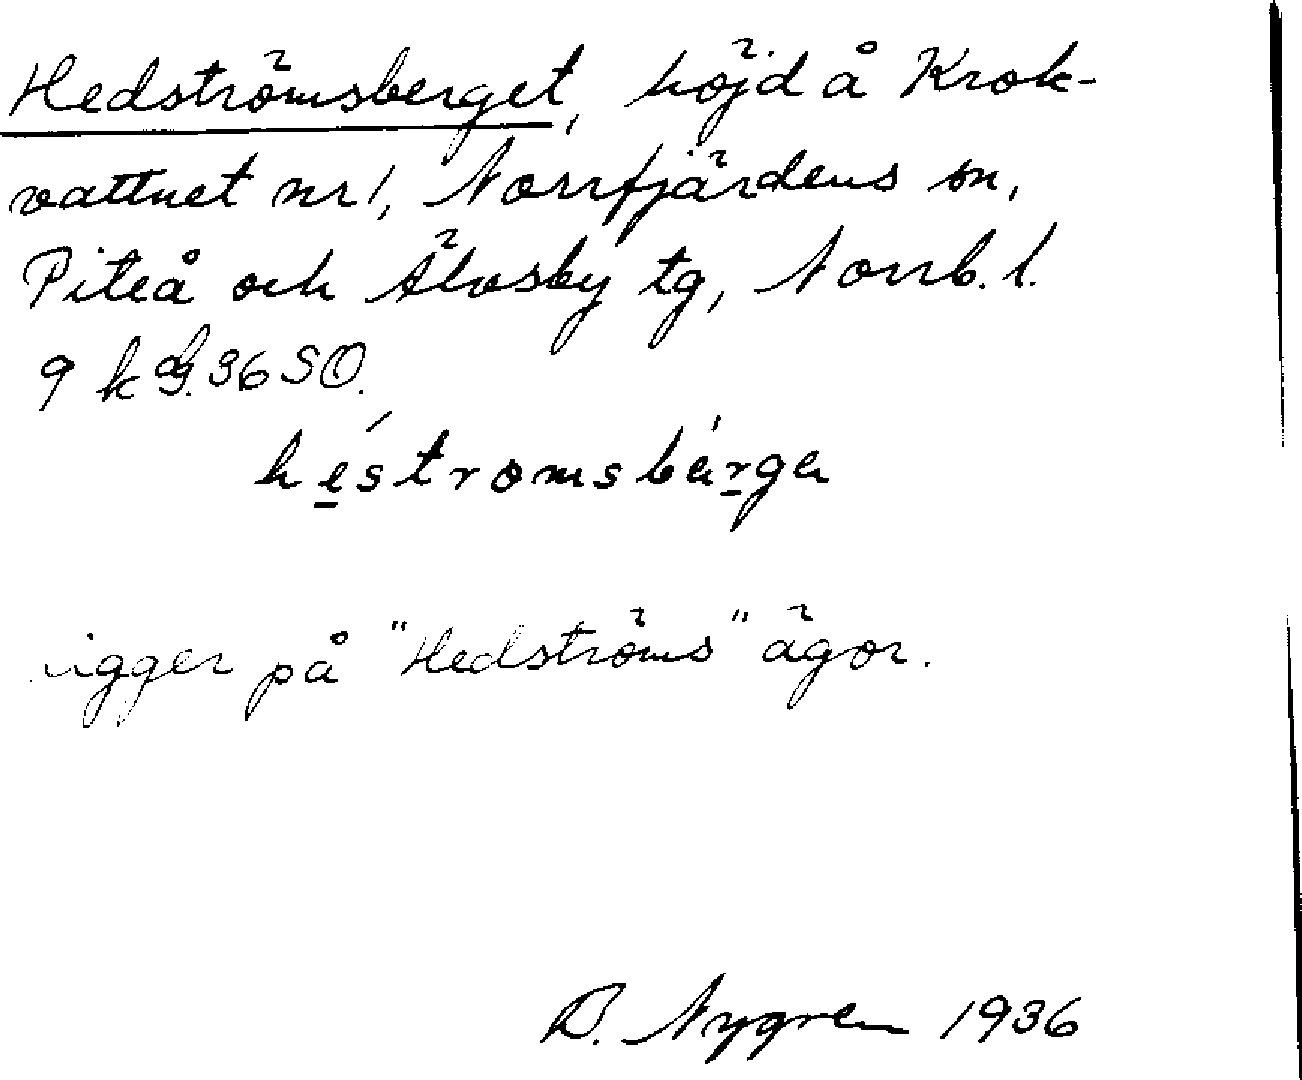 Hedströmsberget, höjd å Krok-
vattnet nr 1, Norrfjärdens sn,
Piteå och Älvsby tg, Norrb. l.
9 k 36 SO.
héstromsbérga
igger på "Hedströms" ägor.
B. Nygren 1936